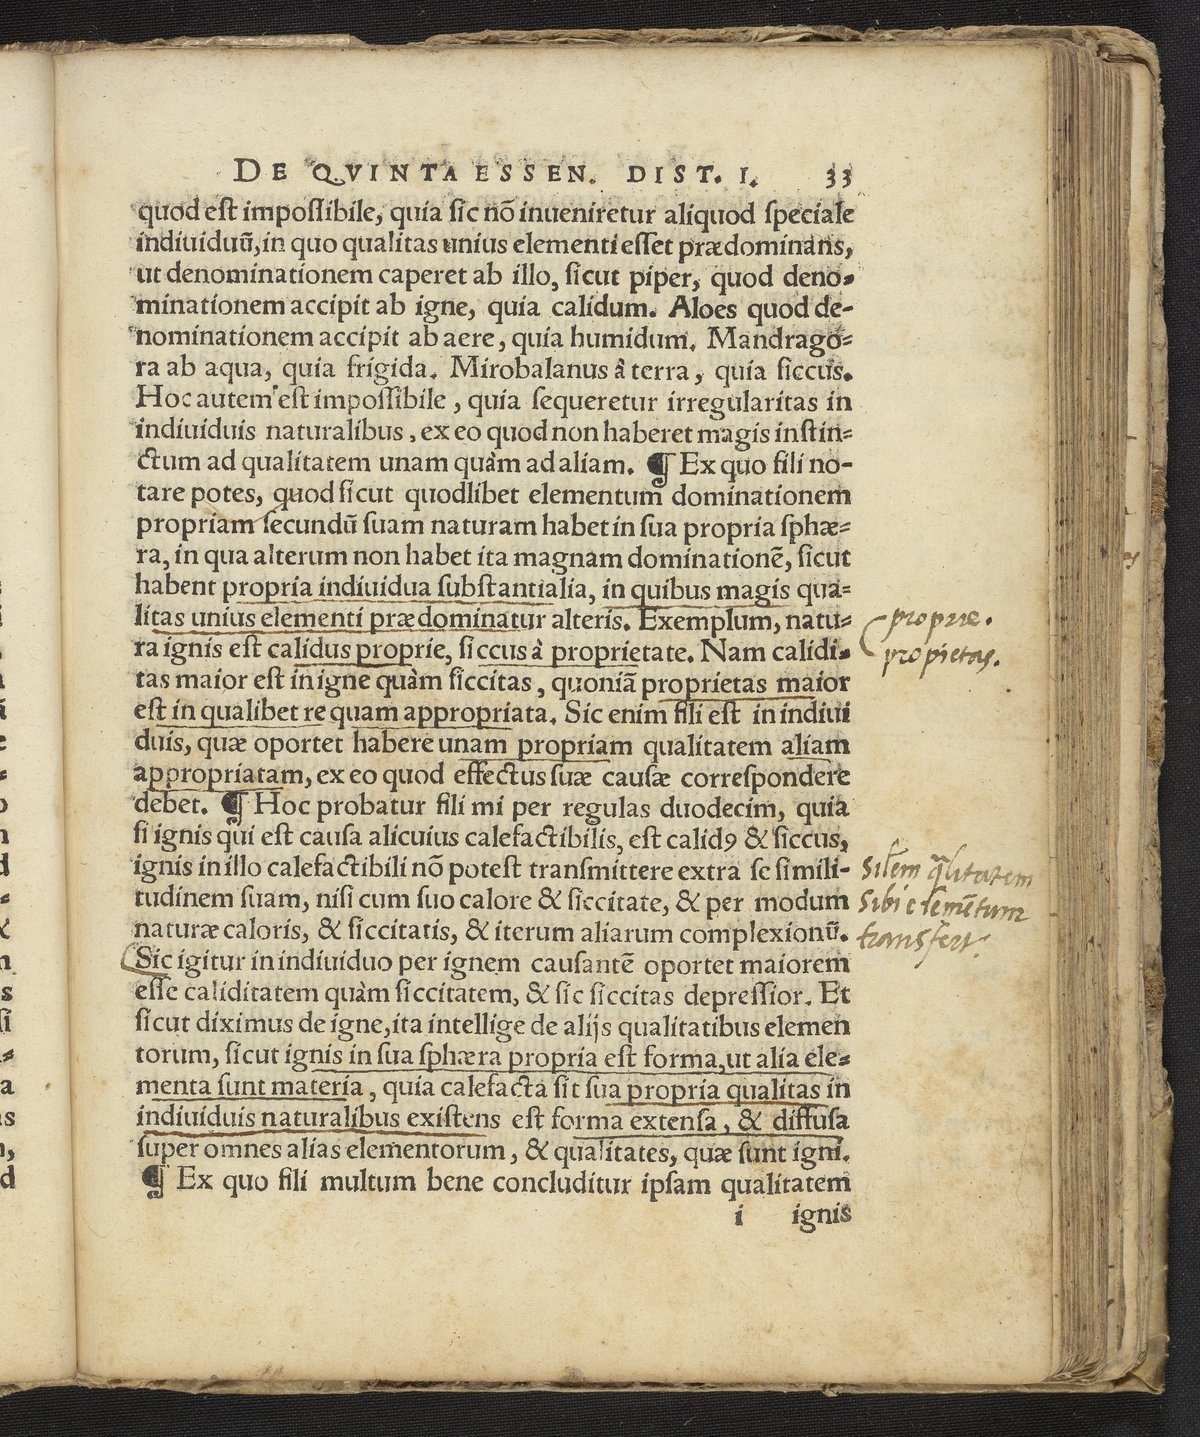 DE QVINTA ESSEN. DIST. I. 33
quod est impossibile, quia sic nõ inueniretur aliquod speciale
indiuiduũ, in quo qualitas unius elementi esset prædominans,
ut denominationem caperet ab illo, sicut piper, quod deno-
minationem accipit ab igne, quia calidum. Aloes quod de-
nominationem accipit ab aere, quia humidum. Mandrago-
ra ab aqua, quia frigida. Mirobalanus à terra, quia siccus.
Hoc autem est impossibile, quia sequeretur irregularitas in
indiuiduis naturalibus, ex eo quod non haberet magis instin-
ctum ad qualitatem unam quàm ad aliam. ¶ Ex quo fili no-
tare potes, quod sicut quodlibet elementum dominationem
propriam secundũ suam naturam habet in sua propria sphæ-
ra, in qua alterum non habet ita magnam dominationẽ, sicut
habent propria indiuidua substantialia, in quibus magis qua-
litas unius elementi prædominatur alteris. Exemplum, natu-
ra ignis est calidus proprie, siccus à proprietate. Nam calidi-
tas maior est in igne quàm siccitas, quoniã proprietas maior
est in qualibet re quam appropriata. Sic enim fili est in indiui
duis, quæ oportet habere unam propriam qualitatem aliam
appropriatam, ex eo quod effectus suæ causæ correspondere
debet. ¶ Hoc probatur fili mi per regulas duodecim, quia
si ignis qui est causa alicuius calefactibilis, est calidꝯ & siccus,
ignis in illo calefactibili nõ potest transmittere extra se simili-
tudinem suam, nisi cum suo calore & siccitate, & per modum
naturæ caloris, & siccitatis, & iterum aliarum complexionũ.
Sic igitur in indiuiduo per ignem causantẽ oportet maiorem
esse caliditatem quàm siccitatem, & sic siccitas depressior. Et
sicut diximus de igne, ita intellige de alijs qualitatibus elemen
torum, sicut ignis in sua sphæra propria est forma, ut alia ele-
menta sunt materia, quia calefacta sit sua propria qualitas in
indiuiduis naturalibus existens est forma extensa, & diffusa
super omnes alias elementorum, & qualitates, quæ sunt igni.
¶ Ex quo fili multum bene concluditur ipsam qualitatem
i ignis
proprie.
propietas.
Silem q̃litatem
sibi elemẽtum
transfert.